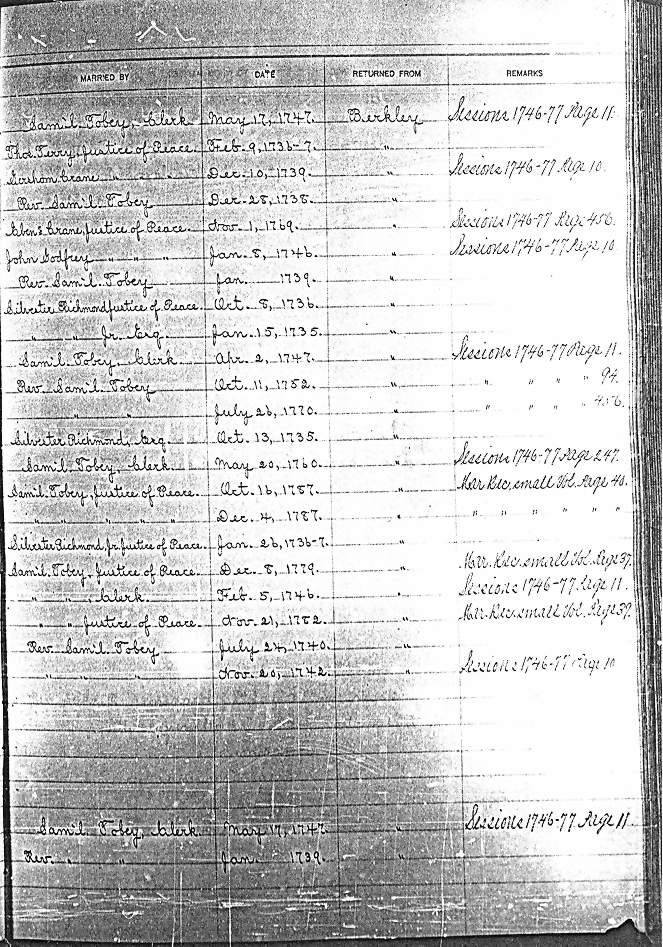 MARRIED BY DATE RETURNED FROM REMARKS
Sam'l. Tobey, Clerk May 17, 1747. Berkley Sessions 1746-77 Page 11.
Tho's. Terry, Justice of Peace. Feb. 9, 1736-7. "
Gershom Crane " " " Dec. 10, 1739. " Sessions 1746-77 Page 10.
Rev. Sam'l. Tobey Dec. 28, 1738. "
Crane, Justice of Peace. Nov. 1, 1769. " Sessions 1746-77 Page 456.
John Godfrey " " " Jan. 8, 1746. " Sessions 1746-77 Page 10
Rev. Sam'l. Tobey Jan. 1739. "
Silvester Richmond Justice of Peace. Oct. 8, 1736. "
" " Jr. Esq. Jan. 15, 1735. "
Sam'l. Tobey, Clerk Apr. 2, 1747. " Sessions 1746-77 Page 11.
Rev. Sam'l. Tobey Oct. 11, 1752. " " " " " 94.
" " July 26, 1770. " " " " " 456.
Silvester Richmond, Esq. Oct. 13, 1735. "
Sam'l. Tobey, Clerk May 20, 1760. " Sessions 1746-77 Page 247.
Sam'l. Tobey, Justice of Peace. Oct. 16, 1787. " Mar. Rec. small Vol. Page 40.
" " " " " Dec. 4, 1787. " " " " " " "
Silvester Richmond, Jr. Justice of Peace. Jan. 26, 1736-7. "
Sam'l. Tobey, Justice of Peace. Dec. 8, 1779. " Mar. Rec. small Vol. Page 37.
" " , Clerk. Feb. 5, 1746. " Sessions 1746-77 Page 11.
" " Justice of Peace. Nov. 21, 1782. " Mar. Rec. small Vol. Page 39.
Rev. Sam'l. Tobey July 24, 1740. "
" " " Nov. 20, 1742. " Sessions 1746-77 Page 10
Sam'l. Tobey, Clerk. May 17, 1747. " Sessions 1746-77 Page 11.
Rev. " " Jan. 1739. "